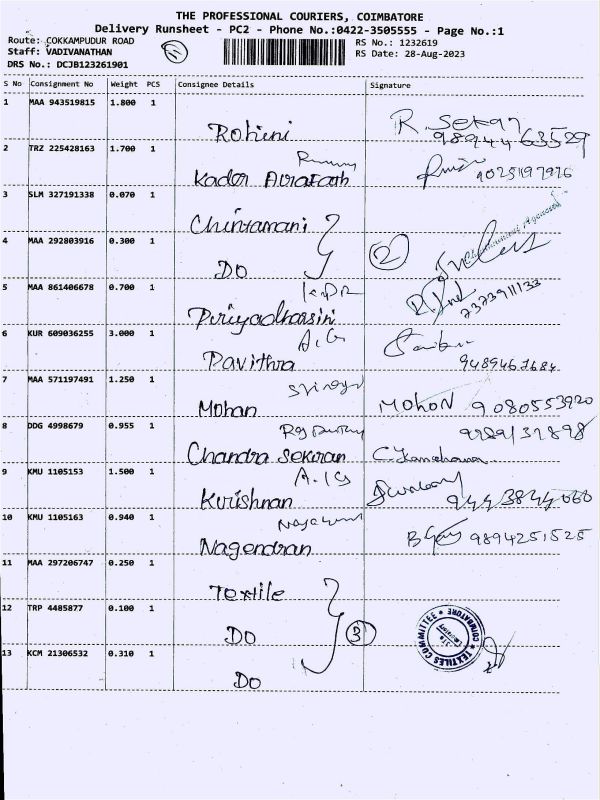 THE PROFESSIONAL COURIERS, COIMBATORE
Delivery Runsheet - PC2 - Phone No.:0422-3505555 - Page No.:1
Route: COKKAMPUDUR ROAD
RS No.: 1232619
Staff: VADIVANATHAN
RS Date: 28-Aug-2023
DRS No.: DCJB123261901
S No Consignment No Weight PCS Consignee Details Signature
1 MAA 943519815 1.800 1 Rohini R. Sekar
9894463529
2 TRZ 225428163 1.700 1
Kador 9025197976
3 SLM 327191338 0.070 1
Chintamani
4 MAA 292803916 0.300 1 2
DO
5 MAA 861406678 0.700 1
Piriyadharsini 7373911133
6 KUR 609036255 3.000 1 A.G
Pavithra
7 MAA 571197491 1.250 1
Mohan MOHON 9080553920
8 DDG 4998679 0.955 1
Chandra Sekaran
9 KMU 1105153 1.500 1
Krishnan
10 KMU 1105163 0.940 1
Nagendran 9894251525
11 MAA 297206747 0.250 1
Textile
12 TRP 4485877 0.100 1
DO 3
TEXTILES COMMITTEE * COIMBATORE *
13 KCM 21306532 0.310 1
DO